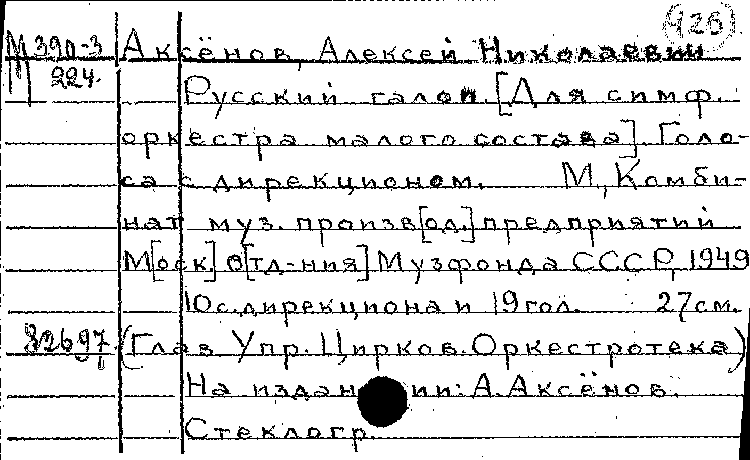 426
М 390-3 Аксёнов, Алексей Николаевич
224.
Русский галоп. [Для симф.
оркестра малого состава]. Голо-
са с дирекционом. М., Комби-
нат муз. произв[од.] предприятий
М[оск.] о[тд-ния] Музфонда СССР, 1949
10 с. дирекциона и 19 гол. 27 см.
82697 (Глав. Упр. Цирков. Оркестротека)
На издан ии: А. Аксёнов.
Стеклогр.